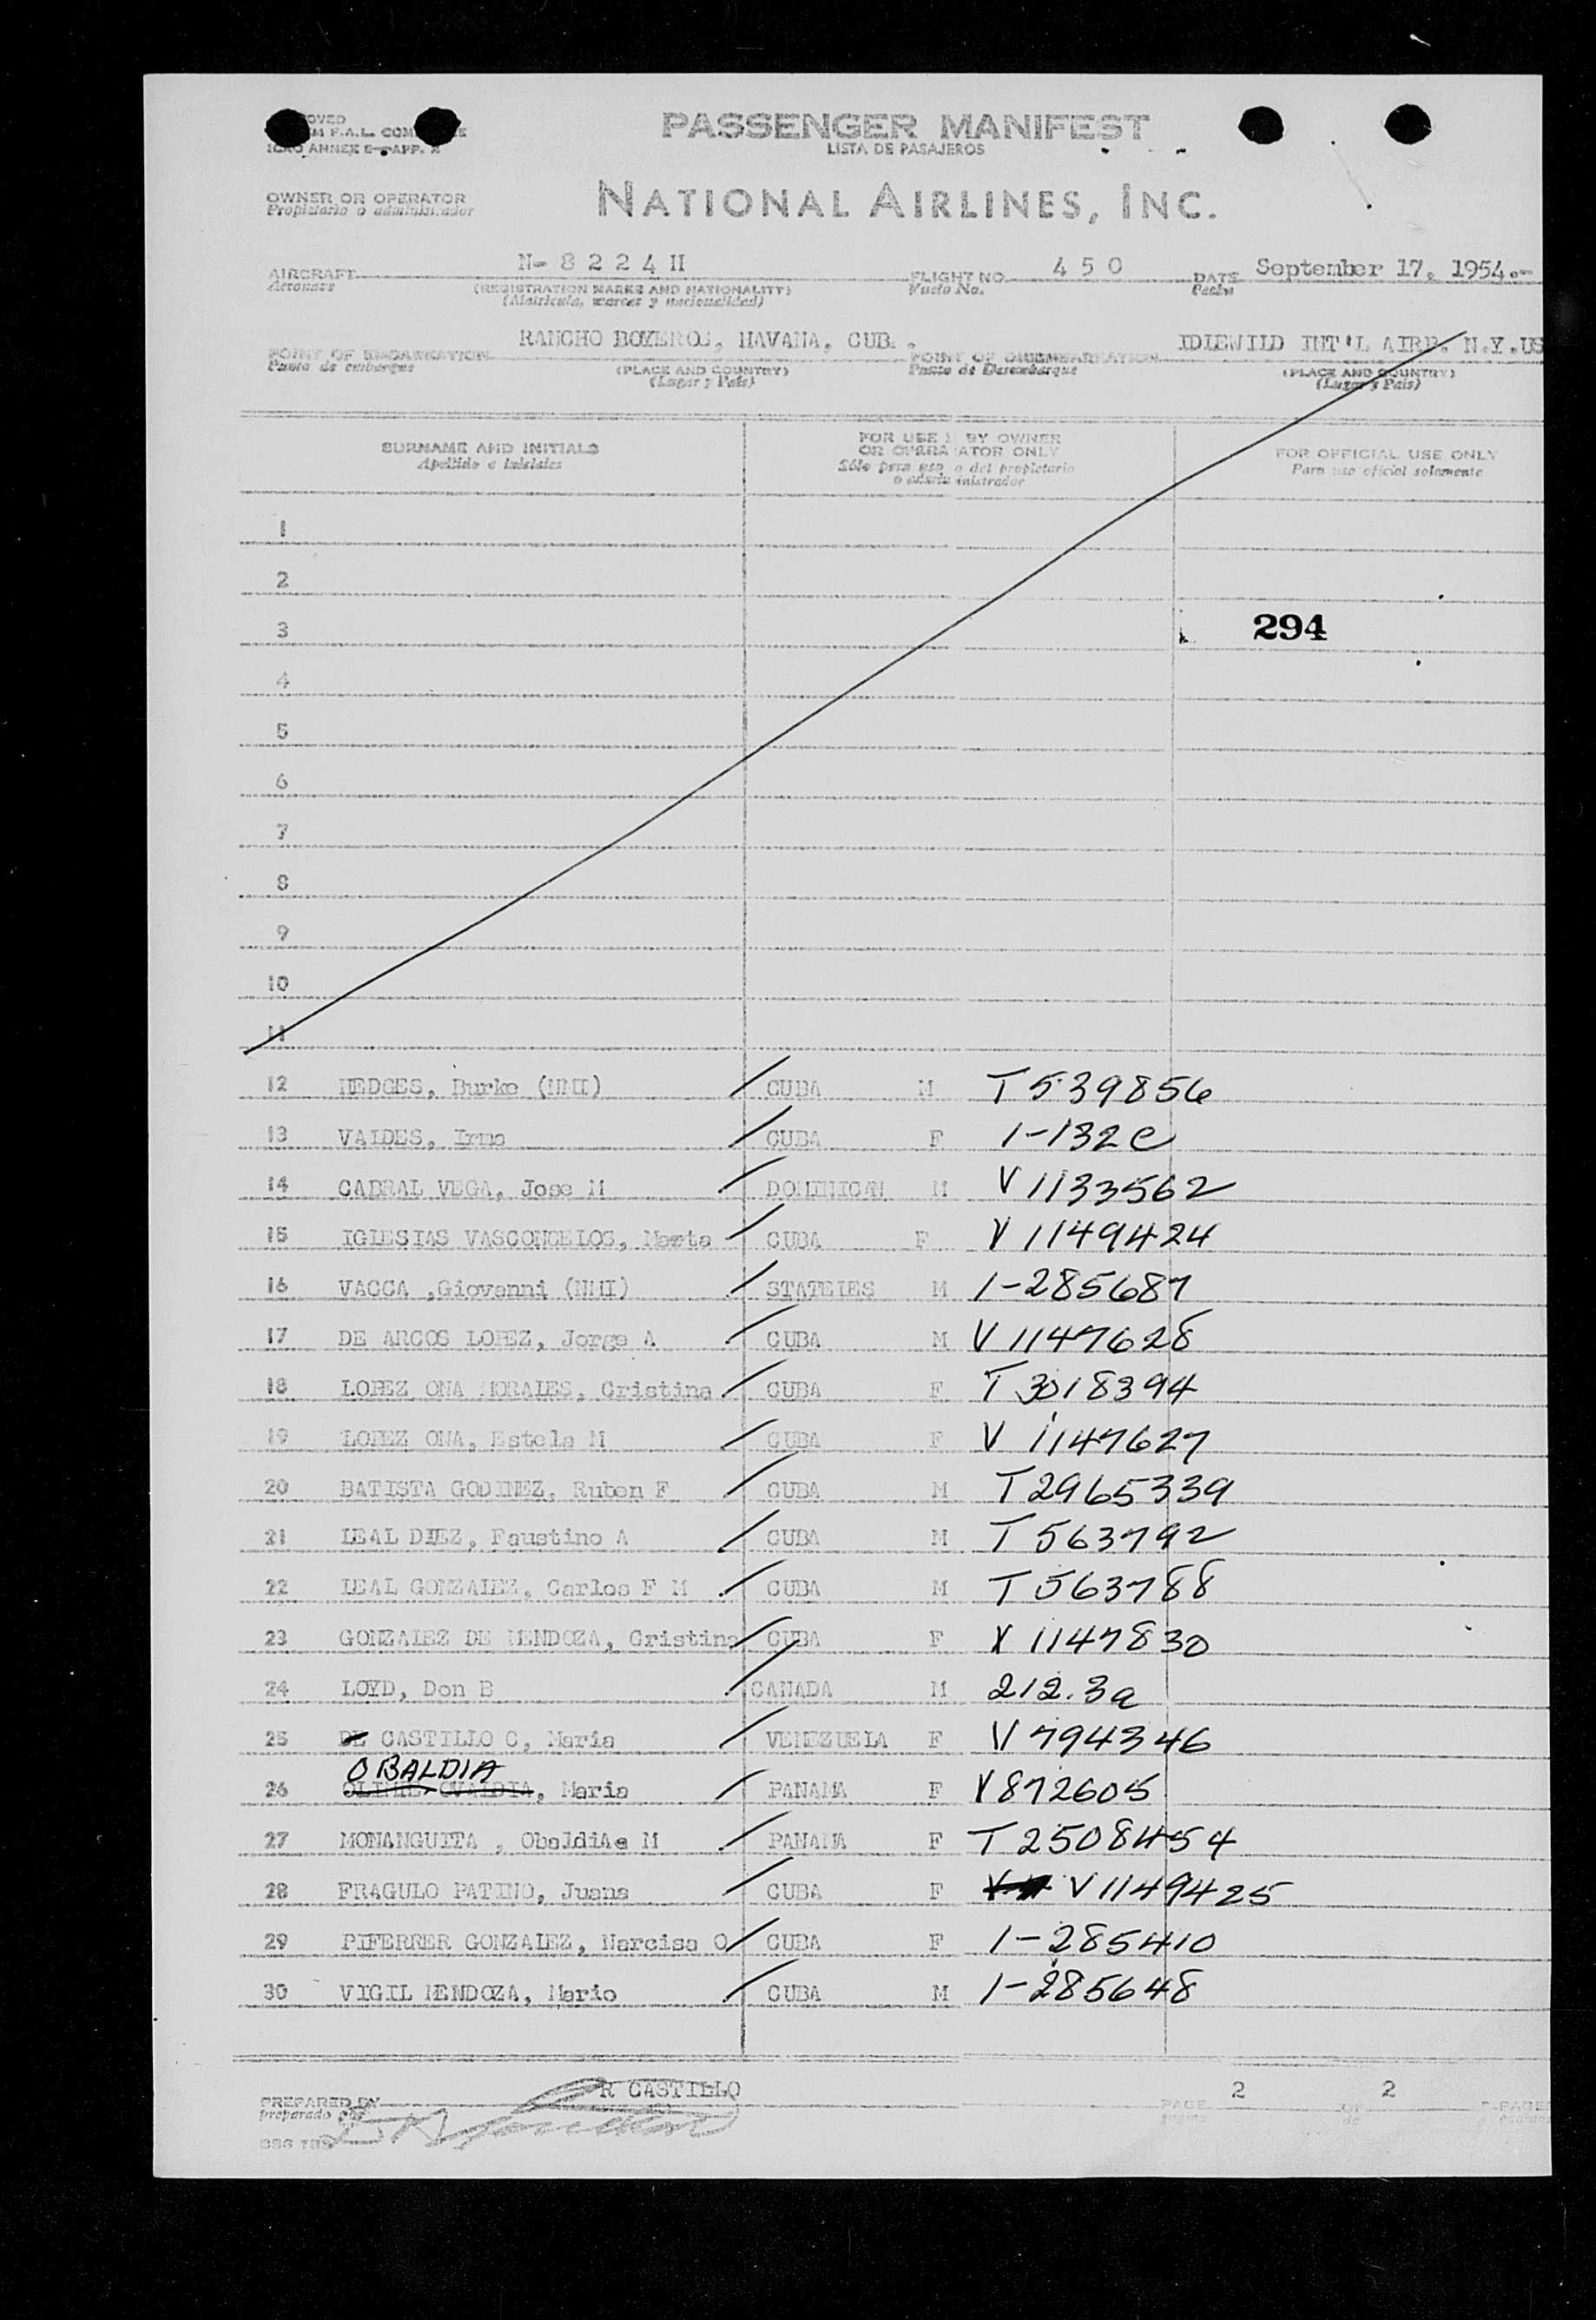 PASSENGER MANIFEST
LISTA DE PASAJEROS
OWNER OR OPERATOR
Propietario o administrador
NATIONAL AIRLINES, INC.
AIRCRAFT N- 8 2 2 4 H FLIGHT NO. 4 5 0 DATE September 17, 1954.-
Aeronave (REGISTRATION MARKS AND NATIONALITY) Vuelo No. Fecha
(Matricula, marcas y nacionalidad)
RANCHO BOYEROS, HAVANA, CUB. IDLEWILD INT'L AIRP. N.Y.US
POINT OF EMBARKATION POINT OF DISEMBARKATION
Punto de embarque (PLACE AND COUNTRY) Punto de Desembarque (PLACE AND COUNTRY)
(Lugar y Pais) (Lugar y Pais)
SURNAME AND INITIALS FOR USE BY OWNER FOR OFFICIAL USE ONLY
Apellido e Iniciales OR OPERATOR ONLY Para uso oficial solamente
1
2
3 294
4
5
6
7
8
9
10
11
12 HEDGES, Burke (NMI) CUBA M T 539856
13 VALDES, Irma CUBA F 1-132 c
14 CABRAL VEGA, Jose M DOMINICAN M V 1133562
15 IGLESIAS VASCONCELOS, Marta CUBA F V 1149424
16 VACCA ,Giovanni (NMI) STATELES M 1-285687
17 DE ARCOS LOPEZ, Jorge A CUBA M V 1147628
18 LOPEZ ONA MORALES, Cristina CUBA F T 3018394
19 LOPEZ ONA, Estela M CUBA F V 1147627
20 BATISTA GODINEZ, Ruben F CUBA M T 2965339
21 LEAL DIEZ, Faustino A CUBA M T 563792
22 LEAL GONZALEZ, Carlos F M CUBA M T 563788
23 GONZALEZ DE MENDOZA, Cristina CUBA F V 1147830
24 LOYD, Don B CANADA M 212.3a
25 DE CASTILLO C, Maria VENEZUELA F V 794346
OBALDIA
26 OVALDIA, Maria PANAMA F V 872605
27 MONANGUITA , ObaldiAe M PANAMA F T 2508454
28 FRAGULO PATINO, Juana CUBA F V 1149425
29 PIFERRER GONZALEZ, Narcisa O CUBA F 1-285410
30 VIGIL MENDOZA, Mario CUBA M 1-285648
R CASTILLO 2 2
PREPARED BY PAGE OF PAGES
preparado por